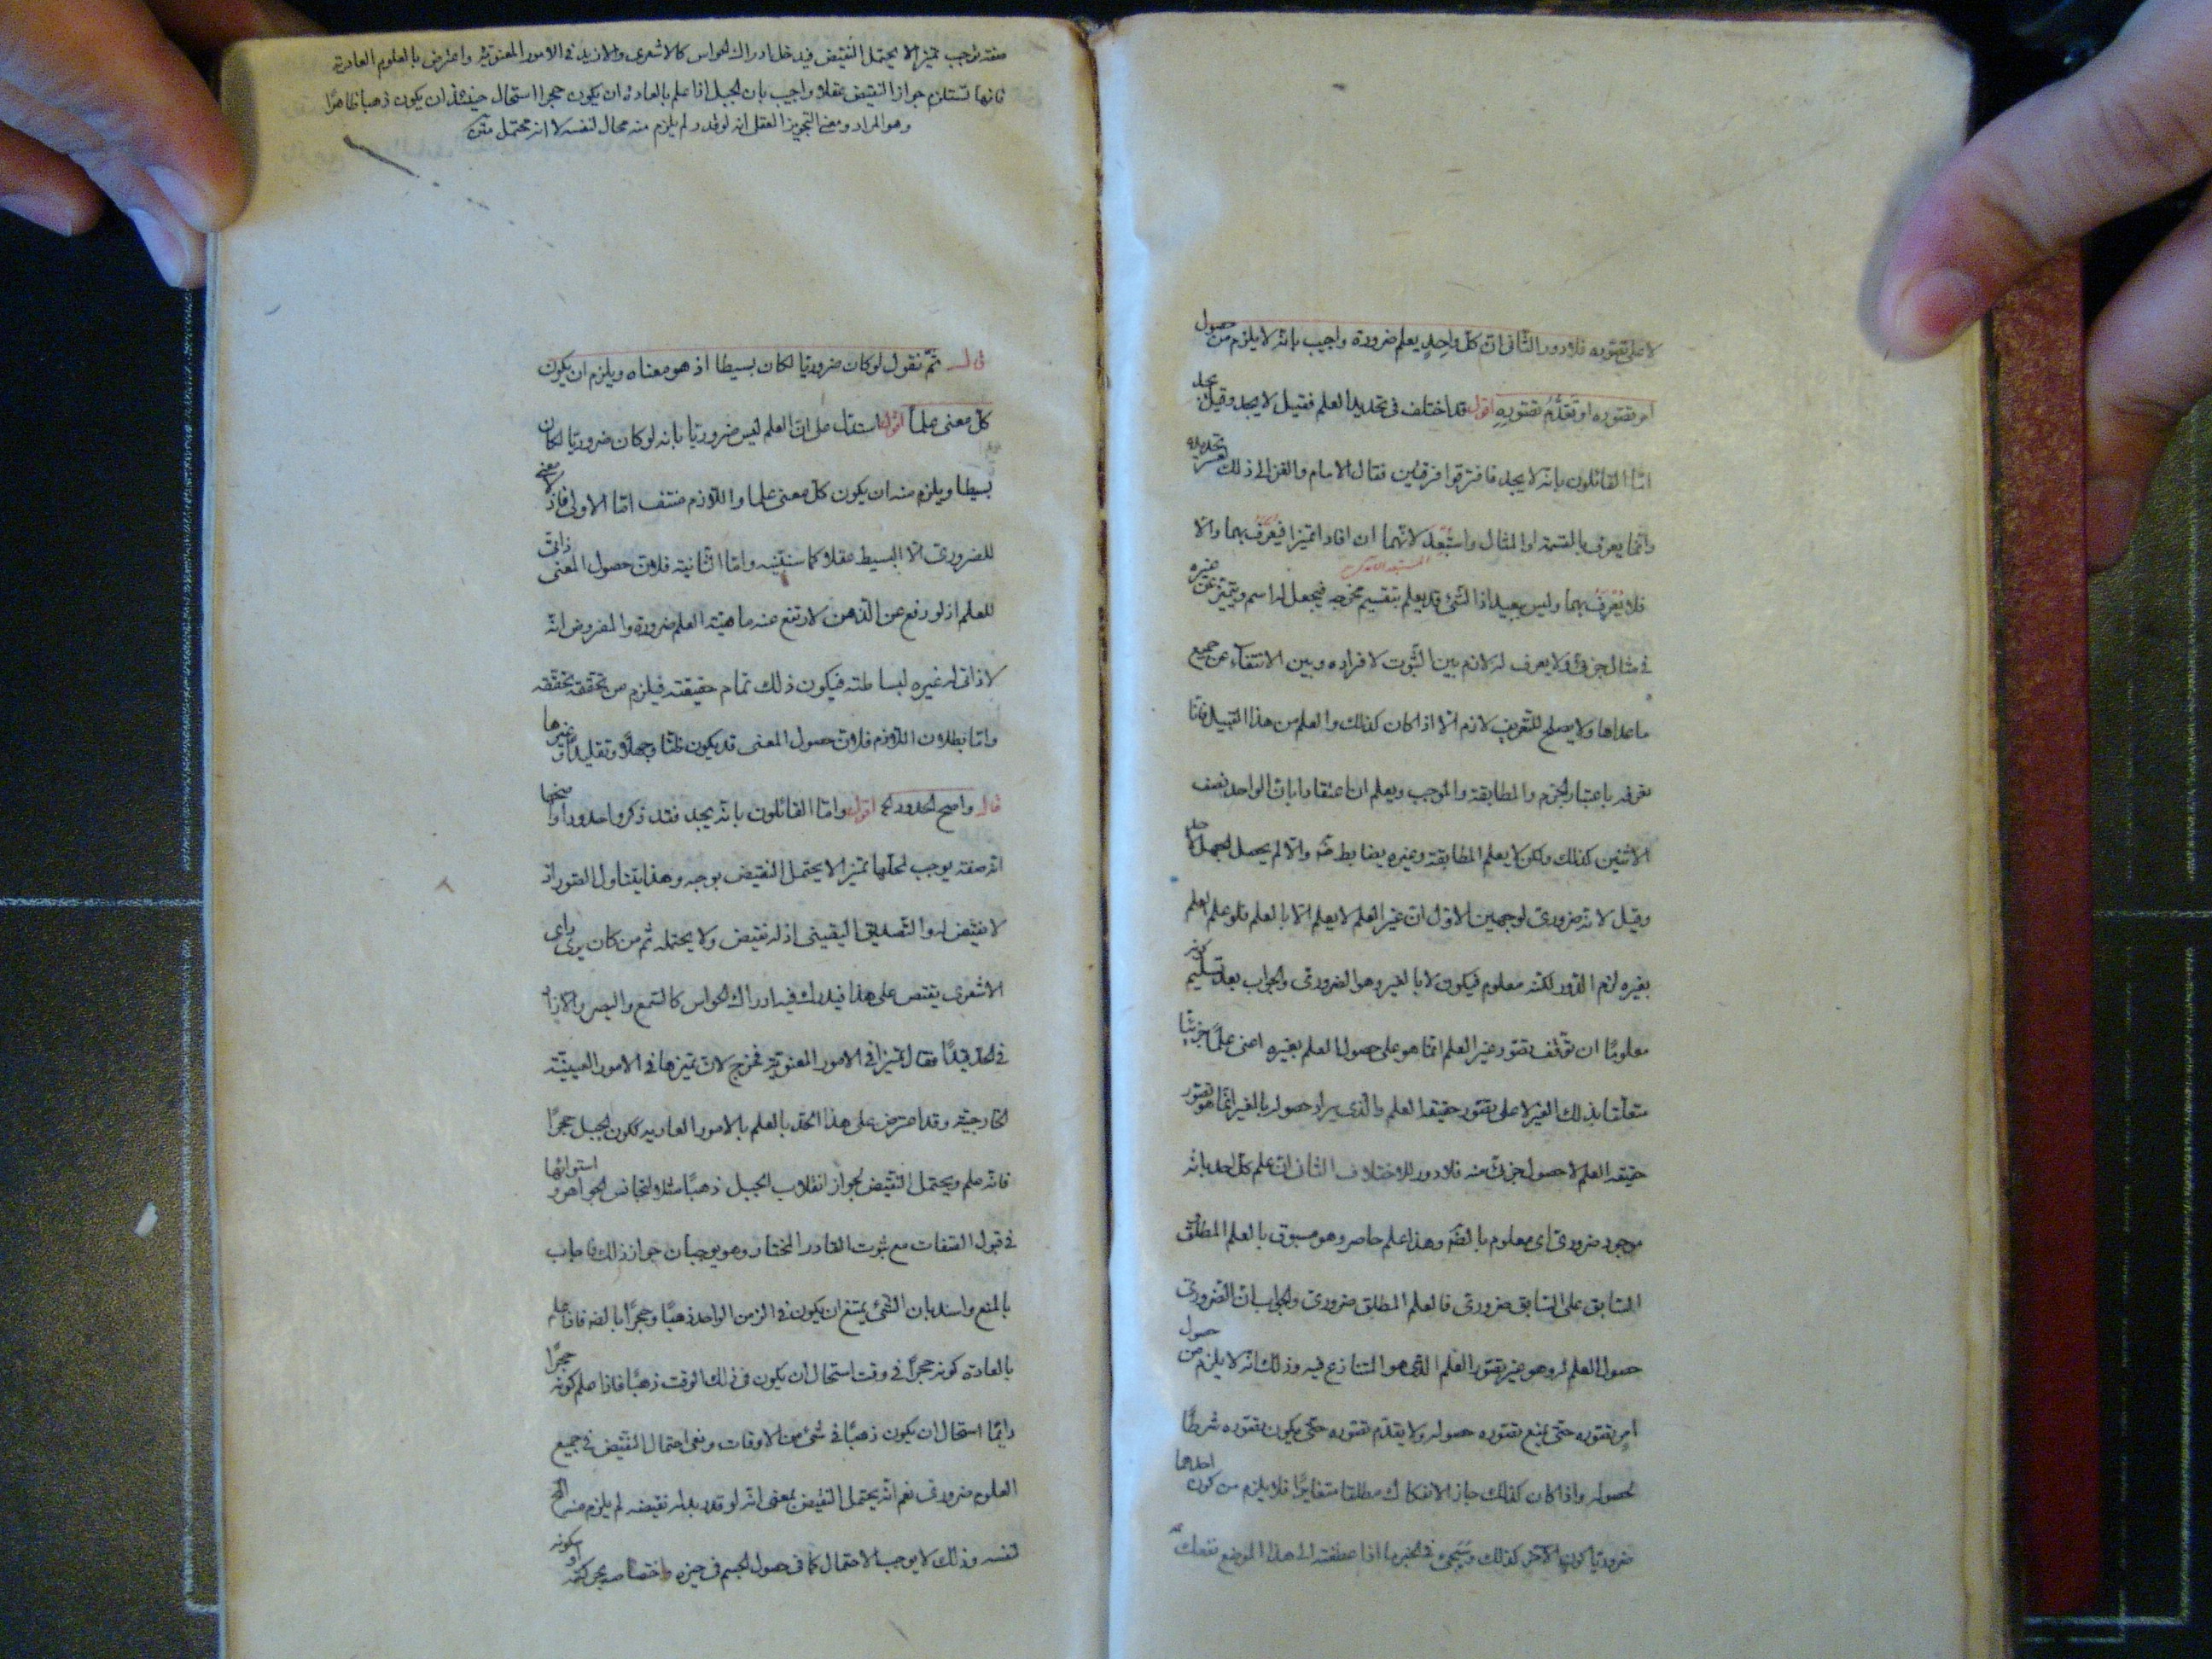 لا على تصوره فلا دور الثانى ان كل واحد يعلم ضرورة واجيب بانه لا يلزم من حصول
امر تصوره او تقدم تصوره اقول قد اختلف فى تحديد العلم فقيل لا يحد وقيل يحد
اما القائلون بانه لا يحد فافترقوا فرقتين فقال الامام والغزالى ذلك لعسر تحديده
وانما يعرف بالقسمة او المثال واستبعد لانهما ان افادا تميزا فيعرف بهما والا
فلا يعرف بهما وليس ببعيد اذ الشئ قد يعلم بتقسيم مخرجه فيجعل له اسم ويتميز عن غيره
فى مثال جزئى ولا يعرف له لازم بين الثبوت لافراده وبين الانتفاء عن جميع
ما عداها ولا يصلح للتعريف لازم الا اذا كان كذلك والعلم من هذا القبيل فانا
نعرفه باعتبار الجزم والمطابقة والموجب ويعلم ان اعتقادا بان الواحد نصف
الاثنين كذلك ولكن لا يعلم المطابقة وغيره بضابط والا لم يحصل الجهل لاحد
وقيل لانه ضرورى لوجهين الاول ان غير العلم لا يعلم الا بالعلم فلو علم العلم
بغيره لزم الدور لكنه معلوم فيكون لا بالغير وهو الضرورى والجواب بعد تسليم كونه
معلوما ان توقف تصور غير العلم انما هو على حصول العلم بغيره اعنى علما جزئيا
متعلقا بذلك الغير لا على تصور حقيقة العلم والذى يراد حصوله بالغير انما هو تصور
حقيقة العلم لا حصول جزئى منه فلا دور للاختلاف الثانى ان علم كل احد بانه
موجود ضرورى اى معلوم بالضرورة وهذا علم خاص وهو مسبوق بالعلم المطلق
السابق على السابق ضرورى فالعلم المطلق ضرورى والجواب ان الضرورى
حصول العلم له وهو غير تصور العلم الذى هو المتنازع فيه وذلك انه لا يلزم من حصول
امر تصوره حتى يتبع تصوره حصوله ولا يقدم تصوره حتى يكون تصوره شرطا
لحصوله واذا كان كذلك جاز الانفكاك مطلقا متغايرا فلا يلزم من كون احدهما
ضروريا كون الآخر كذلك وسيجئ فى الخبر ما اذا عطفته الى هذا الموضع نفعك
صفة توجب تميزا لا يحتمل النقيض فيدخل ادراك الحواس كالاشعرى والا زيد فى الامور المعنوية واعترض بالعلوم العادية
فانها تستلزم جواز النقيض عقلا واجيب بان الجبل اذا علم بالعادة ان يكون حجرا استحال حينئذ ان يكون ذهبا ظاهرا
وهو المراد ومعنى التجويز العقلى انه لو قدر لم يلزم منه محال لنفسه لا انه محتمل متن
قال ثم نقول لو كان ضروريا لكان بسيطا اذ هو معناه ويلزم ان يكون
كل معنى علما اقول استدل على ان العلم ليس ضروريا بانه لو كان ضروريا لكان
بسيطا ويلزم منه ان يكون كل معنى علما واللازم منتف اما الاولى فاذ لا معنى
للضرورى الا البسيط عقلا كما سنبينه واما الثانية فلان حصول المعنى ذاتى
للعلم اذ لو رفع عن الذهن لارتفع منه ماهية العلم ضرورة والمفروض انه
لا ذاتى له غيره لبساطته فيكون ذلك تمام حقيقته فيلزم من تحققه تحققه
واما بطلان اللازم فلان حصول المعنى قد يكون ظنا وجهلا وتقليدا وغيرها
قال واصح الحدود الخ اقول واما القائلون بانه يحد فقد ذكروا حدودا واصحها
انه صفة يوجب لمحلها تميزا لا يحتمل النقيض بوجه وهذا يتناول التصور اذ
لا نقيض له والتصديق اليقينى اذ له نقيض ولا يحتمله ثم من كان يرى راى
الاشعرى يقتصر على هذا فيدرك فيه ادراك الحواس كالسمع والبصر والا زاد
فى الحد قيدا فقال تميزا فى الامور المعنوية فخرج لان تميزها فى الامور العينية
الخارجية وقد اعترض على هذا الحد بالعلم بالامور العادية ككون الجبل حجرا
فانه علم ويحتمل النقيض لجواز انقلاب الجبل ذهبا مثلا لتجانس الجواهر واستوائها
فى قبول الصفات مع ثبوت القادر المختار وهو يوجبان جواز ذلك فاجاب
بالمنع واسند بان الشئ يمتنع ان يكون فى الزمن الواحد ذهبا وحجرا بالضرورة فاذا علم
بالعادة كونه حجرا فى وقت استحال ان يكون فى ذلك الوقت ذهبا فاذا علم كونه حجرا
دائما استحال ان يكون ذهبا فى شئ من الاوقات ونفى احتمال النقيض فى جميع
العلوم ضرورى نعم انه يحتمل النقيض بمعنى انه لو قدر بدله نقيضه لم يلزم منه محال
لنفسه وذلك لا يوجب الاحتمال كما فى حصول الجسم فى حيزه واختصاصه بحركته او سكونه